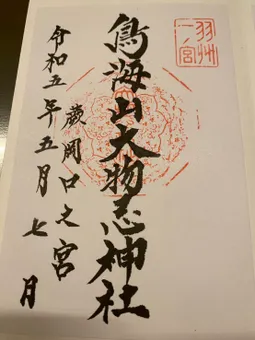 羽州
一ノ宮
鳥海山大物忌神社
蕨岡口之宮
令和五年五月七日